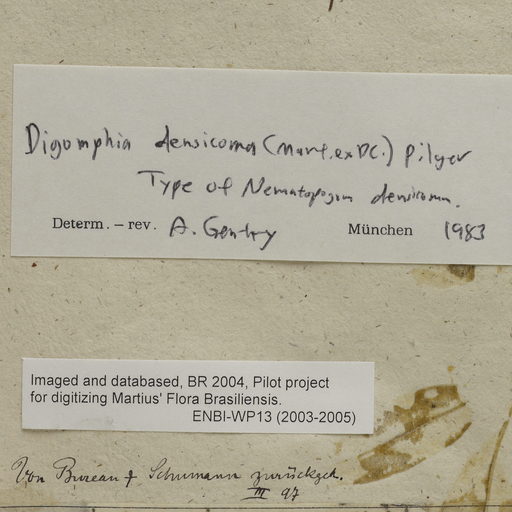 Digomphia densicoma (Mart. ex DC.) Pilger
Type of Nematopogon densicoma.
Determ. – rev. A. Gentry München 1983
Imaged and databased, BR 2004, Pilot project
for digitizing Martius' Flora Brasiliensis.
ENBI-WP13 (2003-2005)
Von Bureau & Schumann zurückgeh.
III 97